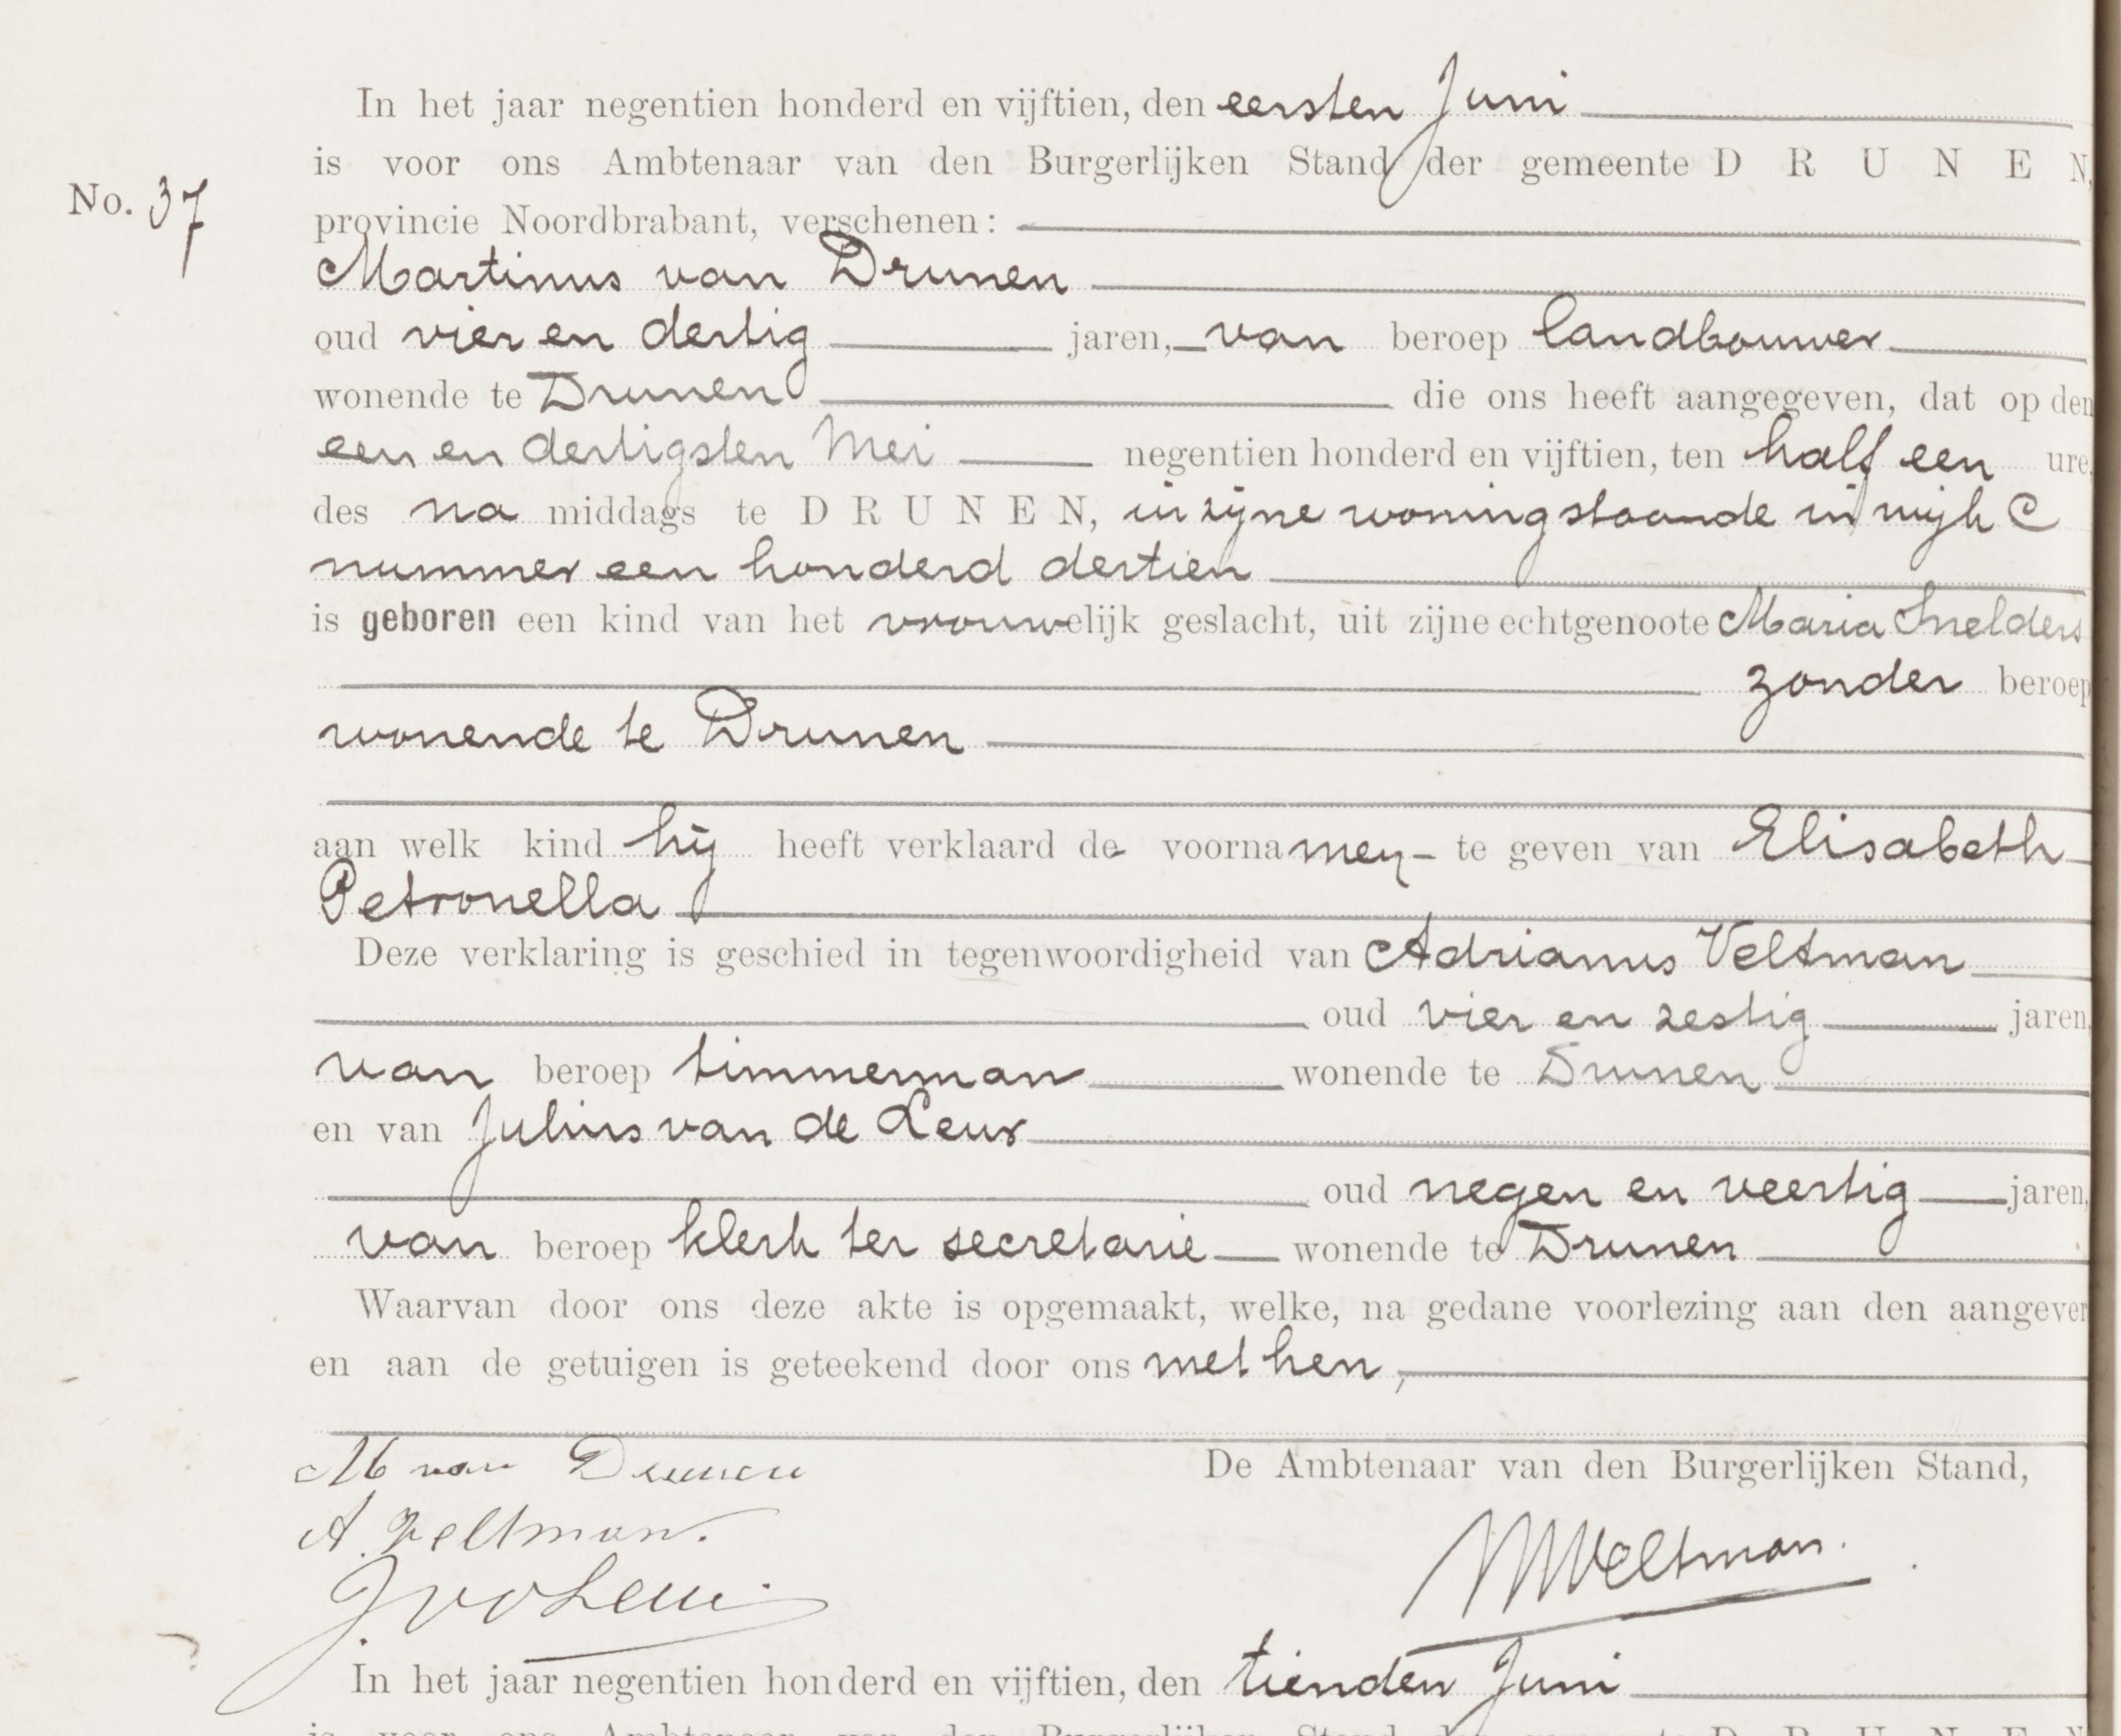 In het jaar negentien honderd en vijftien, den eersten Juni
is voor ons Ambtenaar van den Burgerlijken Stand der gemeente DRUNEN,
No. 37
provincie Noordbrabant, verschenen:
Martinus van Drunen
oud vier en dertig jaren, van beroep landbouwer
wonende te Drunen die ons heeft aangegeven, dat op den
een en dertigsten Mei negentien honderd en vijftien, ten half een ure,
des na middags te DRUNEN, in zijne woning staande in wijk C
nummer een honderd dertien
is geboren een kind van het vrouwelijk geslacht, uit zijne echtgenoote Maria Snelders
zonder beroep
wonende te Drunen
aan welk kind hij heeft verklaard de voornamen te geven van Elisabeth
Petronella
Deze verklaring is geschied in tegenwoordigheid van Adrianus Veltman
oud vier en zestig jaren,
van beroep timmerman wonende te Drunen
en van Julius van de Leur
oud negen en veertig jaren,
van beroep klerk ter secretarie wonende te Drunen
Waarvan door ons deze akte is opgemaakt, welke, na gedane voorlezing aan den aangever
en aan de getuigen is geteekend door ons met hen,
M van Drunen De Ambtenaar van den Burgerlijken Stand,
A. Veltman.
JvdLeur Veltman.
In het jaar negentien honderd en vijftien, den tienden Juni